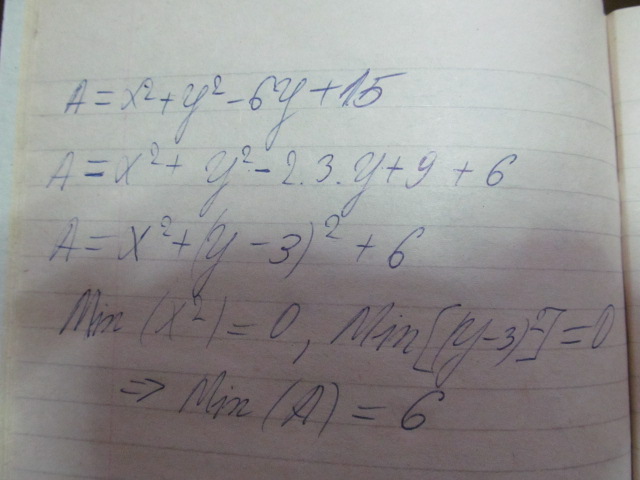 A = x² + y² - 6y + 15
A = x² + y² - 2.3.y + 9 + 6
A = x² + (y - 3)² + 6
Min (x²) = 0, Min [(y-3)²] = 0
=> Min (A) = 6